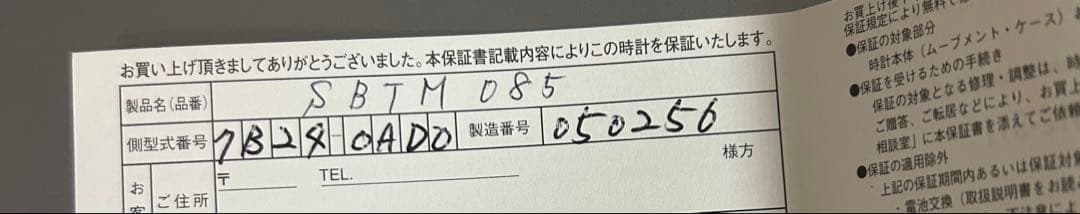 お買い上げ頂きましてありがとうございました。本保証書記載内容によりこの時計を保証いたします。
製品名(品番) SBTM085
側型式番号 7B24-0AD0 製造番号 050256
お客 ご住所 〒 TEL. 様方
お買上げ後
保証規定により無料で
●保証の対象部分
時計本体(ムーブメント・ケース)
●保証を受けるための手続き
保証の対象となる修理・調整は、時
ご贈答、ご転居などにより、お買上
相談室」に本保証書を添えてご依頼
●保証の適用除外
上記の保証期間内あるいは保証対象
・電池交換(取扱説明書をお読